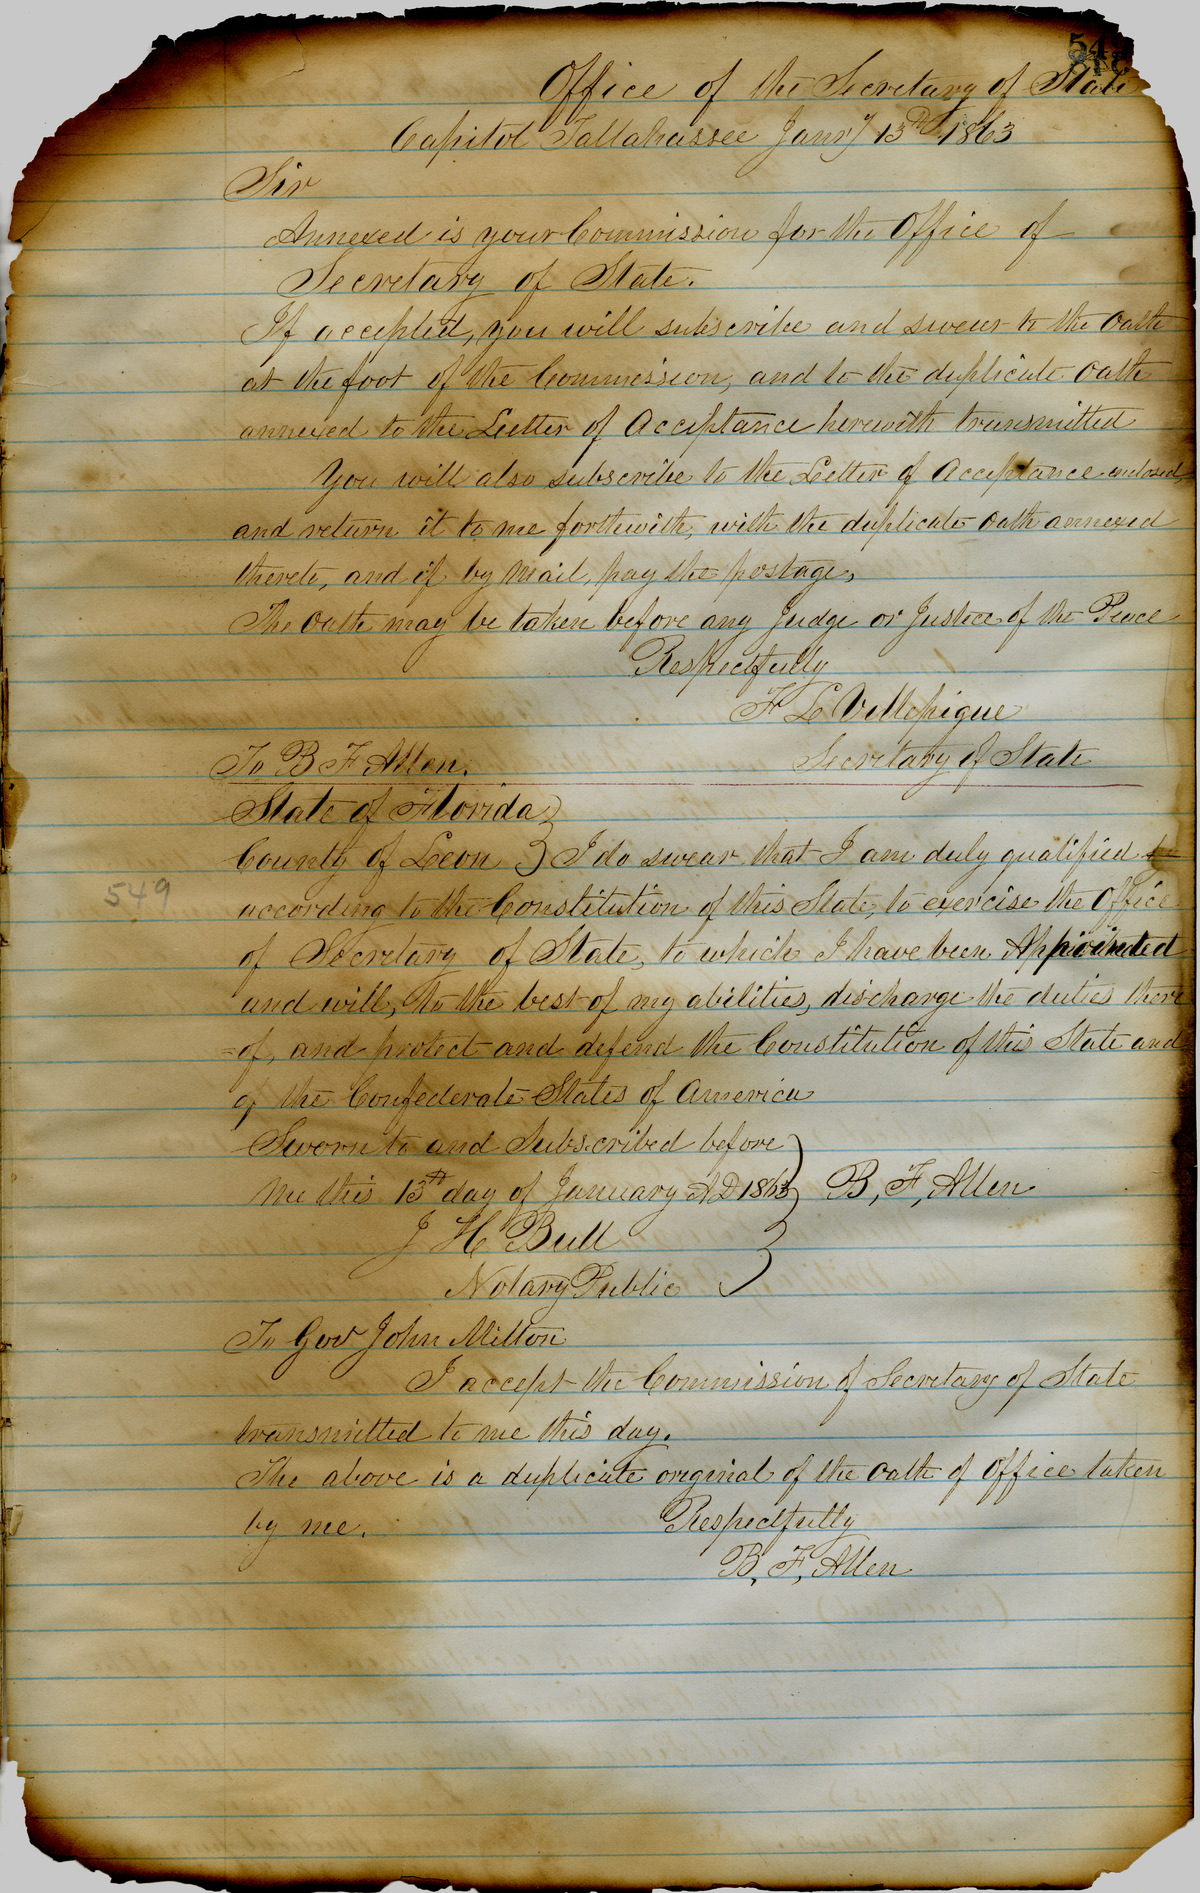 Office of the Secretary of State
Capitol Tallahassee Jany 13th 1863
Sir
Annexed is your Commission for the Office of
Secretary of State.
If accepted, you will subscribe and swear to the Oath
at the foot of the Commission, and to the duplicate Oath
annexed to the Letter of Acceptance herewith transmitted
You will also subscribe to the Letter of Acceptance enclosed,
and return it to me forthwith, with the duplicate Oath annexed
thereto, and if by Mail, pay the postage,
The Oath may be taken before any Judge or Justice of the Peace
Respectfully
F L Villepigue
To B F Allen. Secretary of State
State of Florida }
County of Leon } I do swear that I am duly qualified
549
according to the Constitution of this State, to exercise the Office
of Secretary of State, to which I have been Appointed
and will, to the best of my abilities, discharge the duties there
=of, and protect and defend the Constitution of this State and
of the Confederate States of America
Sworn to and Subscribed before }
me this 13th day of January AD 1863 } B, F, Allen
J H Bull
Notary Public }
To Gov John Milton
I accept the Commission of Secretary of State
transmitted to me this day.
The above is a duplicate original of the Oath of Office taken
by me. Respectfully
B, F, Allen